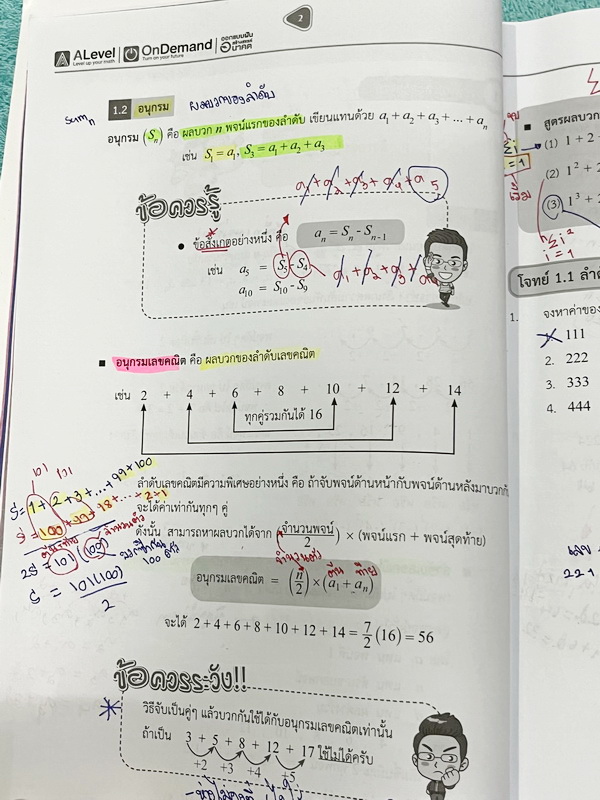 2
ALevel
Level up your math
OnDemand
Turn on your future
ออกแบบฝัน
อนาคต
Sum n
1.2 อนุกรม
ผลบวกของลำดับ
อนุกรม (Sₙ) คือ ผลบวก n พจน์แรกของลำดับ เขียนแทนด้วย a₁ + a₂ + a₃ + ... + aₙ
เช่น S₁ = a₁, S₃ = a₁ + a₂ + a₃
a₁ + a₂ + a₃ + a₄ + a₅
ข้อควรรู้
ข้อสังเกตอย่างหนึ่ง คือ aₙ = Sₙ - Sₙ₋₁
เช่น a₅ = S₅ - S₄
a₁ + a₂ + a₃ + a₄
a₁₀ = S₁₀ - S₉
■ อนุกรมเลขคณิต คือ ผลบวกของลำดับเลขคณิต
เช่น 2 + 4 + 6 + 8 + 10 + 12 + 14
ทุกคู่รวมกันได้ 16
ลำดับเลขคณิตมีความพิเศษอย่างหนึ่ง คือ ถ้าจับพจน์ด้านหน้ากับพจน์ด้านหลังมาบวกกั
จะได้ค่าเท่ากันทุกๆ คู่
ดังนั้น สามารถหาผลบวกได้จาก (จำนวนพจน์/2) × (พจน์แรก + พจน์สุดท้าย)
จำนวนตัว ต้น ท้าย
อนุกรมเลขคณิต = (n/2) × (a₁ + aₙ)
จะได้ 2 + 4 + 6 + 8 + 10 + 12 + 14 = 7/2 (16) = 56
101 101
S = 1 + 2 + 3 + ... + 99 + 100
S = 100 + 99 + 98 + ... + 2 + 1
จำนวนตัว
2S = 101 (100)
100 ตัว
S = 101(100)/2
ข้อควรระวัง!!
วิธีจับเป็นคู่ๆ แล้วบวกกันใช้ได้กับอนุกรมเลขคณิตเท่านั้น
ถ้าเป็น 3 + 5 + 8 + 12 + 17 ใช้ไม่ได้ครับ
+2 +3 +4 +5
■ สูตรผลบวก
(1) 1 + 2
(2) 1² + 2
(3) 1³ + 2
โจทย์ 1.1 ลำ
1. จงหาค่าของ
1. 111
2. 222
3. 333
4. 444
221